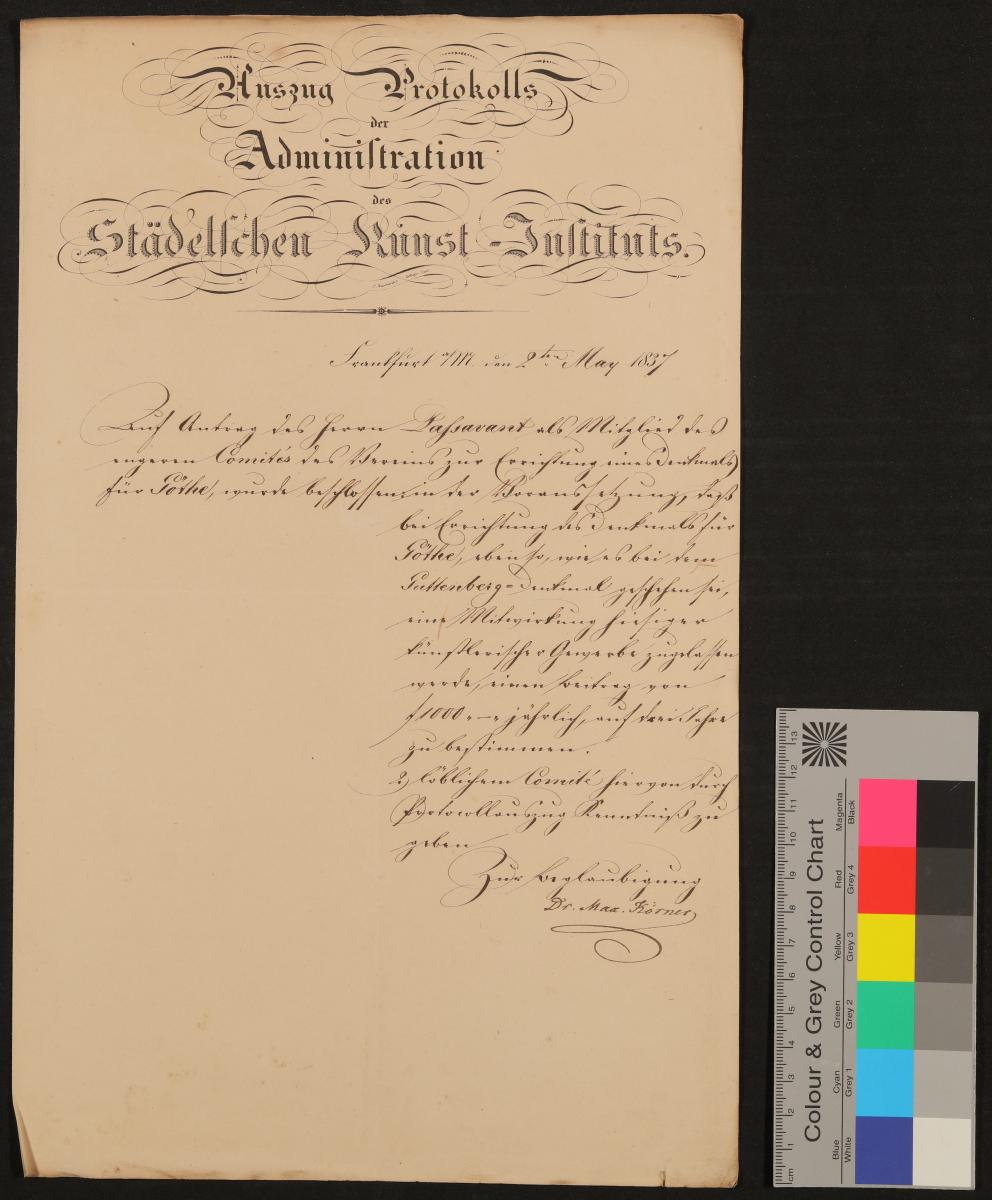 Auszug Protokolls
der
Adminiſtration
des
Städelſchen Kunst-Inſtituts.
Frankfurt a/M. den 2ten May 1837
Auf Antrag des Herrn Paſsavant als Mitglied des
engeren Comités des Vereins zur Errichtung eines Denkmals
für Göthe, wurde beschlossen: in der Voraussetzung, daß
bei Errichtung des Denkmals für
Göthe, ebenso, wie es bei dem
Guttenberg-Denkmal geschehen sei,
eine Mitwirkung hiesiger
künstlerischer Gewerbe zugelassen
werde, einen Beitrag von
f 1000 „—„ jährlich, auf drei Jahre
zu bestimmen.
2) löblichem Comité hiervon durch
Protocollauszug Kenntniß zu
geben
Zur Beglaubigung
Dr. Max. Körner
Colour & Grey Control Chart
Blue Cyan Green Yellow Red Magenta
White Grey 1 Grey 2 Grey 3 Grey 4 Black
cm 1 2 3 4 5 6 7 8 9 10 11 12 13